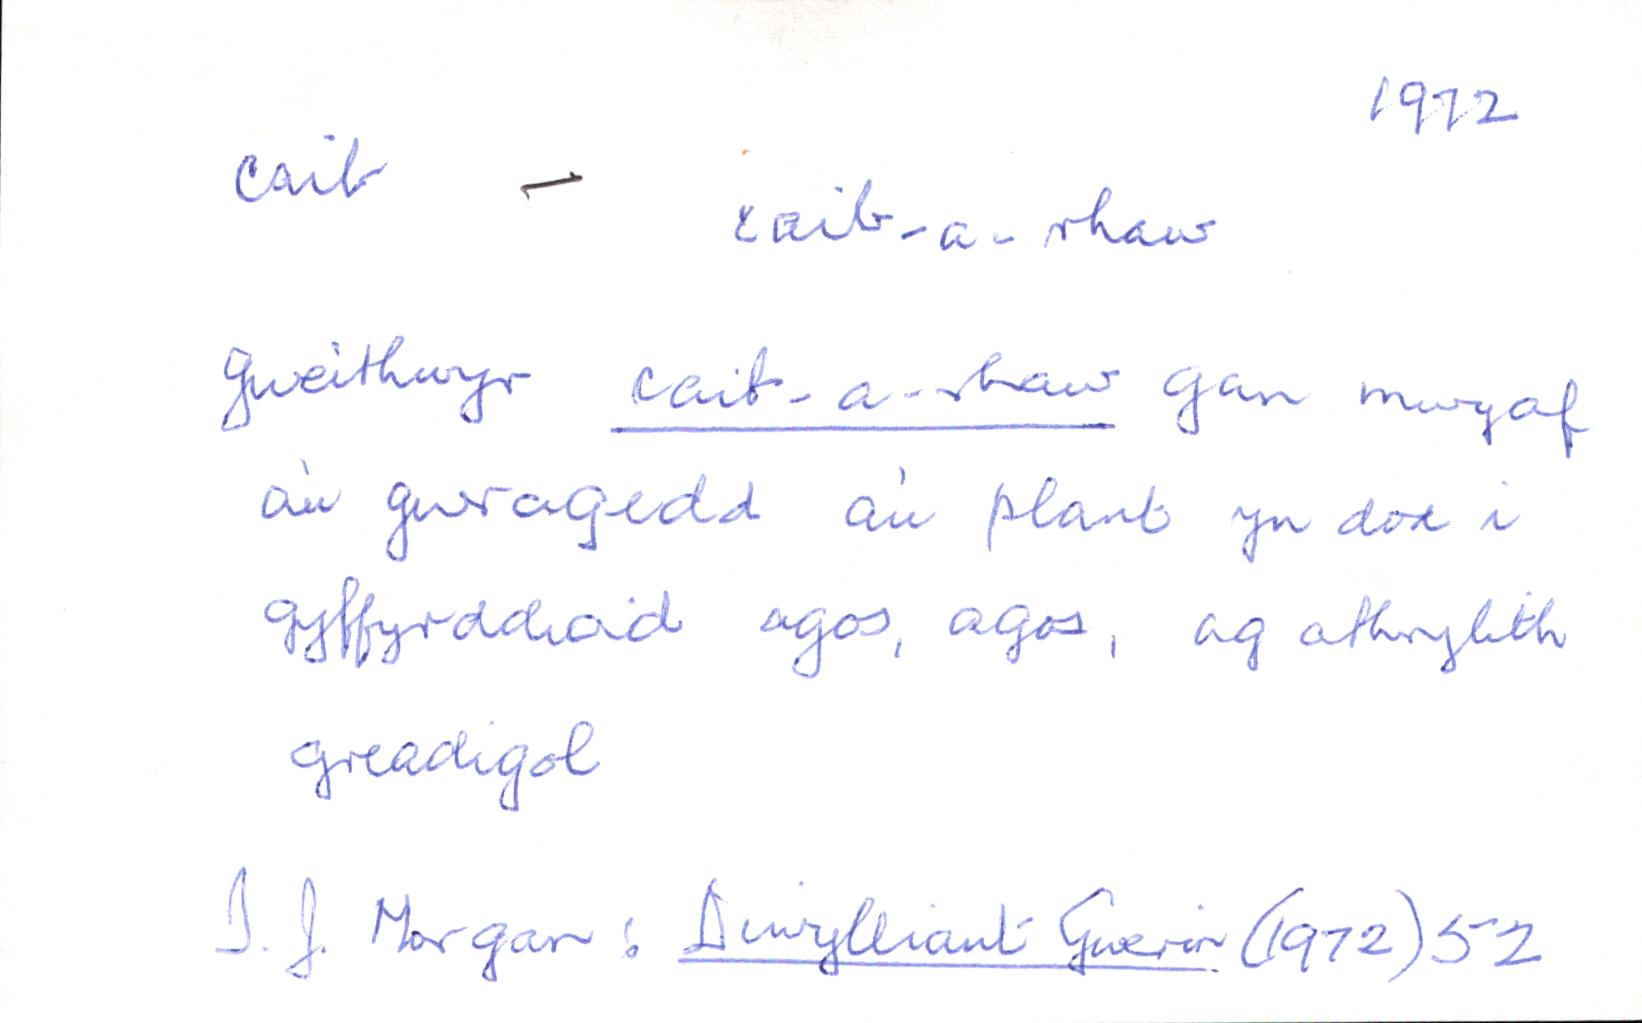 1972
caib – caib-a-rhaw
Gweithwyr caib-a-rhaw gan mwyaf
a'u gwragedd a'u plant yn dod i
gyffyrddiad agos, agos, ag athrylith
greadigol
T. J. Morgan : Diwylliant Gwerin (1972) 52